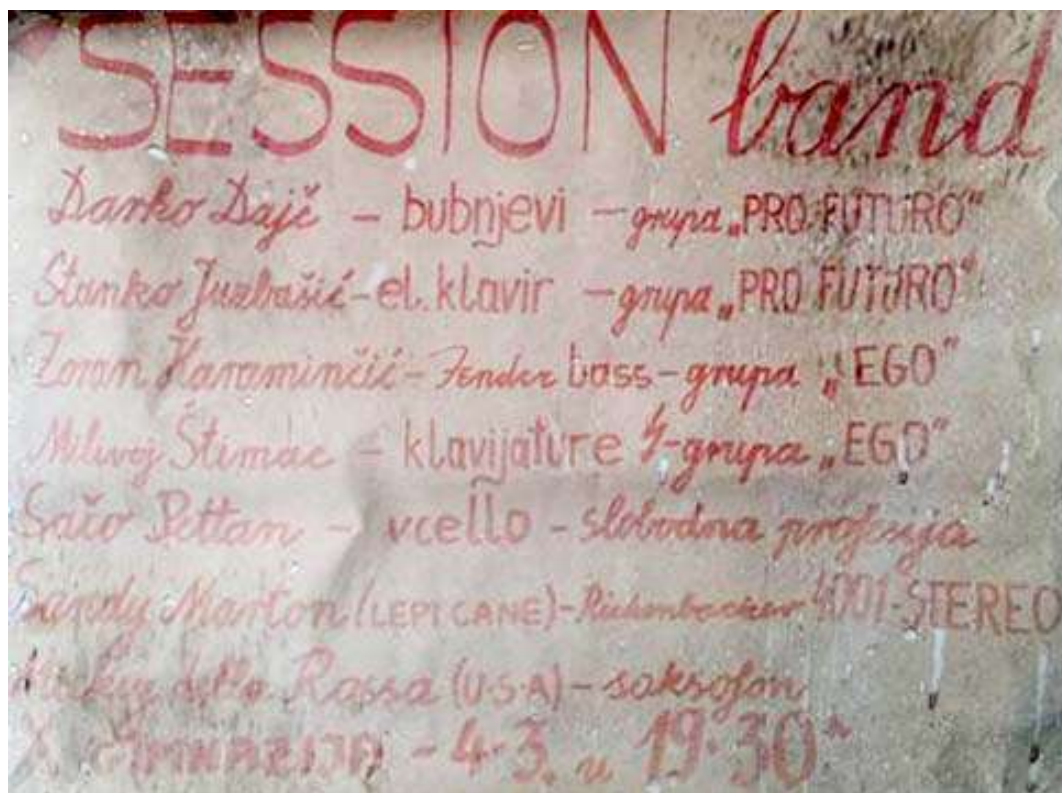 SESSION band
Darko Dajč - bubnjevi - grupa „PRO FUTURO"
Stanko Juzbašić - el. klavir - grupa „PRO FUTURO"
Zoran Karaminčić - Fender bass - grupa „EGO"
Milivoj Štimac - klavijature - grupa „EGO"
Sašo Pettan - vcello - slobodna
Sandy Marton (LEPI CANE) - Rickenbacker 4001-STEREO
della Rassa (U.S.A) - saksofon
X GIMNAZIJA - 4.3. u 19.30